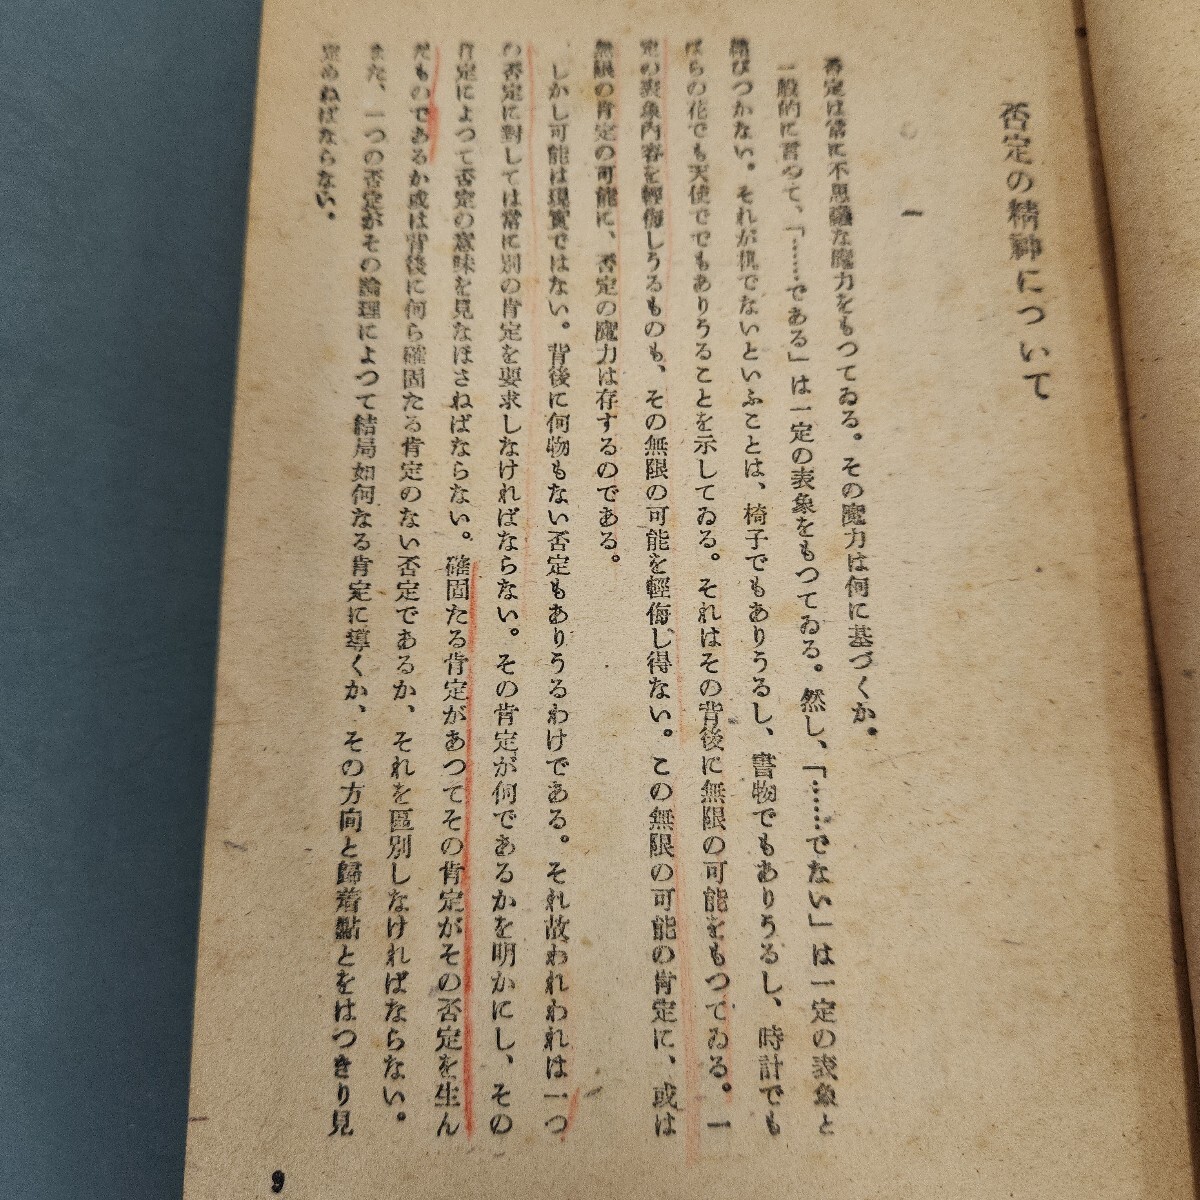 否定の精神について
一
否定は常に不思議な魔力をもつてゐる。その魔力は何に基づくか。
一般的に言つて、「……である」は一定の表象をもつてゐる。然し、「……でない」は一定の表象と
結びつかない。それが机でないといふことは、椅子でもありうるし、書物でもありうるし、時計でも
ばらの花でも天使ででもありうることを示してゐる。それはその背後に無限の可能をもつてゐる。一
定の表象內容を輕侮しうるものも、その無限の可能を輕侮し得ない。この無限の可能の肯定に、或は
無限の肯定の可能に、否定の魔力は存するのである。
しかし可能は現實ではない。背後に何物もない否定もありうるわけである。それ故われわれは一つ
の否定に對しては常に別の肯定を要求しなければならない。その肯定が何であるかを明かにし、その
肯定によつて否定の意味を見なほさねばならない。確固たる肯定があつてその肯定がその否定を生ん
だものであるか或は背後に何ら確固たる肯定のない否定であるか、それを區別しなければならない。
また、一つの否定がその論理によつて結局如何なる肯定に導くか、その方向と歸着點とをはつきり見
定めねばならない。
9